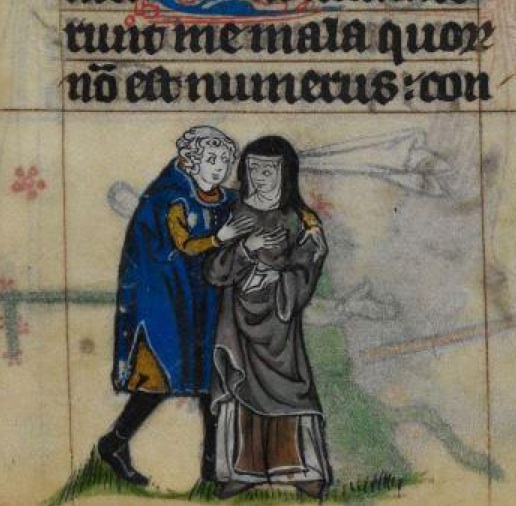 runt me mala quoꝝ
nō est numerus : con